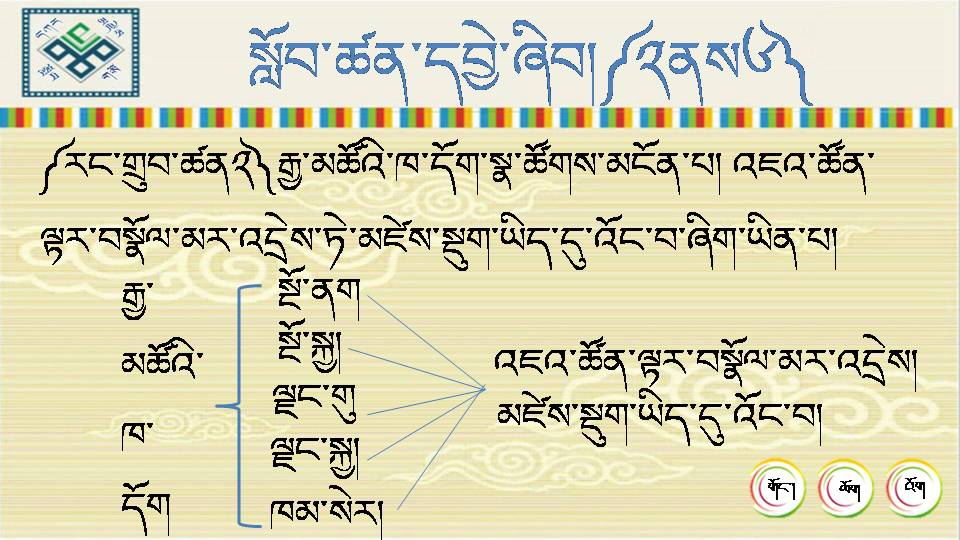 སློབ་ཚན་དབྱེ་ཞིབ། ༼༢ནས༦༽
༼རང་གྲུབ་ཚན༢༽རྒྱ་མཚོའི་ཁ་དོག་སྣ་ཚོགས་མངོན་པ། འཇའ་ཚོན་
ལྟར་བསྣོལ་མར་འདྲེས་ཏེ་མཛེས་སྡུག་ཡིད་དུ་འོང་བ་ཞིག་ཡིན་པ།
རྒྱ་
མཚོའི་
ཁ་
དོག
སྔོ་ནག
སྔོ་སྐྱ།
ལྗང་གུ
ལྗང་སྐྱ།
ཁམ་སེར།
འཇའ་ཚོན་ལྟར་བསྣོལ་མར་འདྲེས།
མཛེས་སྡུག་ཡིད་དུ་འོང་བ།
གོང་།
ཤོག
འོག